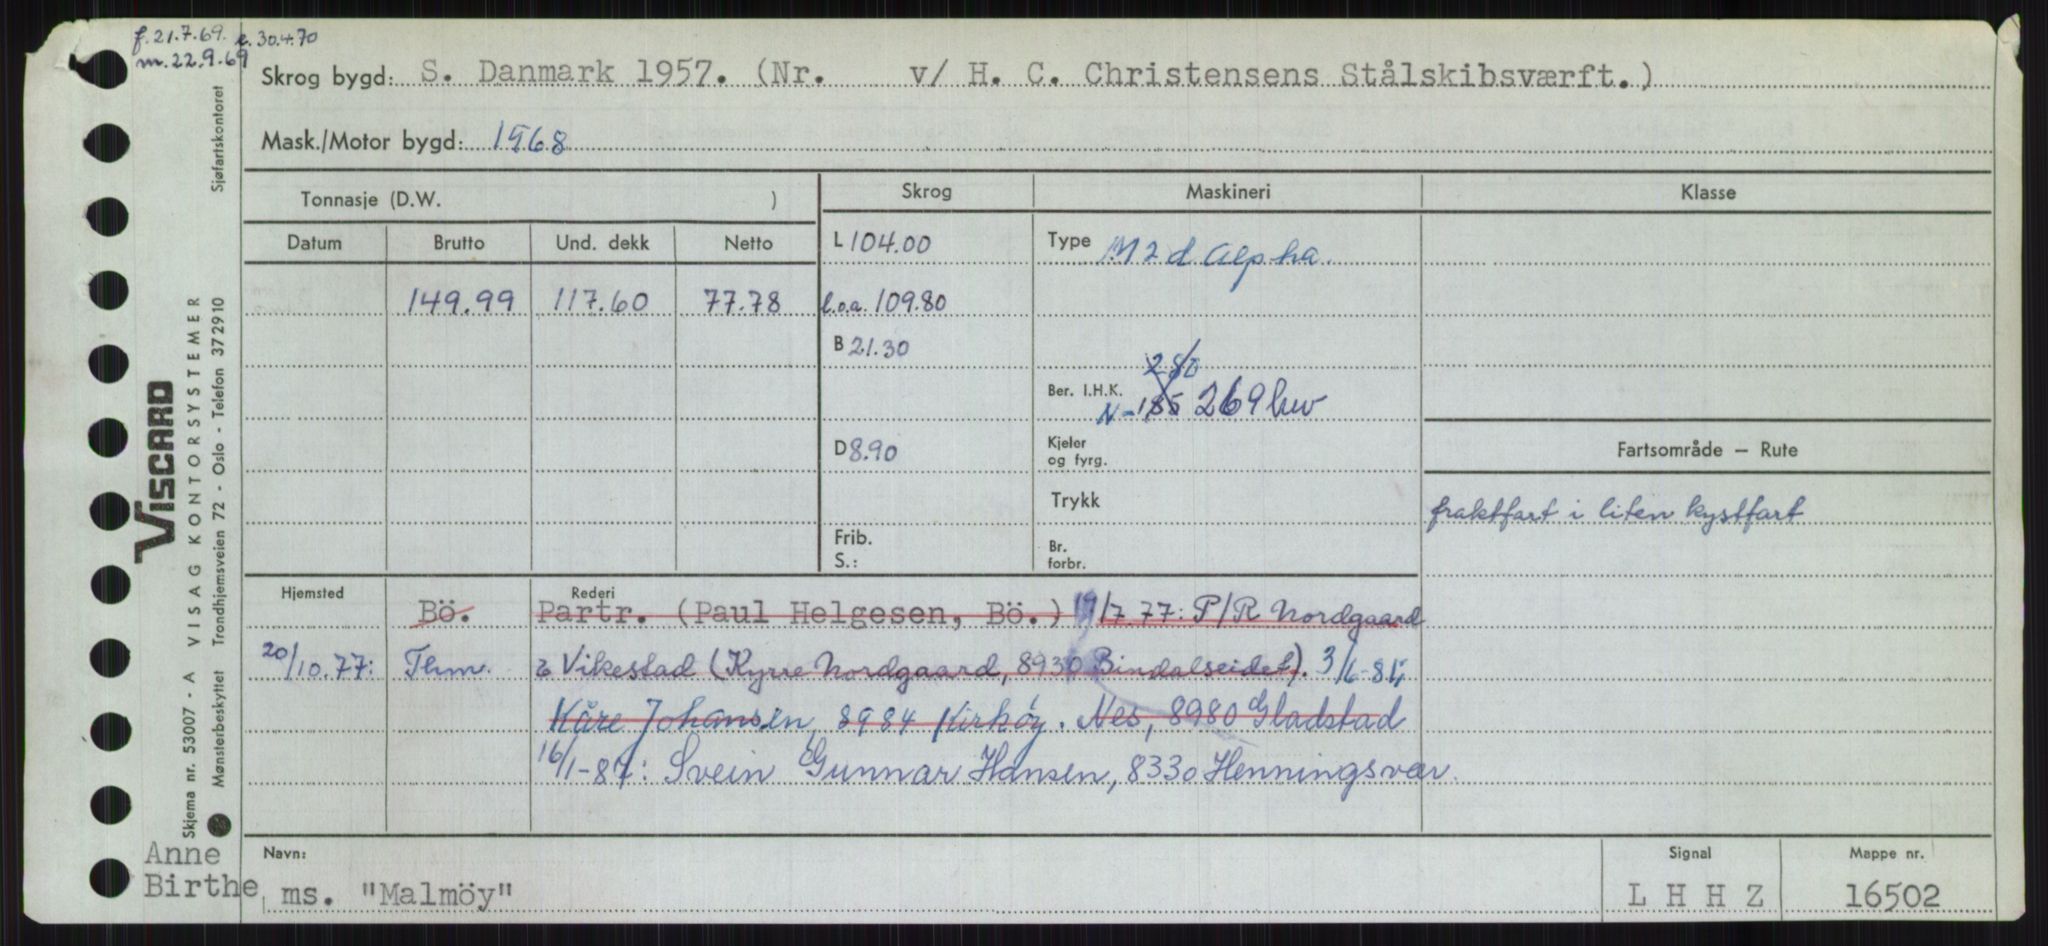 f. 21.7.69. e. 30.4.70
m. 22.9.69
Skrog bygd: S. Danmark 1957. (Nr. v/ H. C. Christensens Stålskibsværft.)
Mask./Motor bygd: 1968
Tonnasje (D.W. )
Skrog
Maskineri
Klasse
Datum Brutto Und. dekk Netto
L 104.00
Type M 2 d Alpha.
149.99 117.60 77.78
l.o.a. 109.80
B 21.30
280
Ber. I.H.K. N-185 269 hw
D 8.90
Kjeler
og fyrg.
Fartsområde – Rute
Trykk
fraktfart i liten kystfart
Frib.
S.:
Br.
forbr.
Hjemsted
Rederi
Bö. Partr. (Paul Helgesen, Bö.) 19/7.77: P/R Nordgaard
20/10.77: Thm. & Vikestad (Kyrre Nordgaard, 8930 Bindalseidet). 3/6-85:
Kåre Johansen, 8984 Kirköy. Nes, 8980 Gladstad
16/1-87: Svein Gunnar Hansen, 8330 Henningsvær.
Navn:
Anne
Birthe
ms. "Malmöy"
Signal
L H H Z
Mappe nr.
16502
VISCARD
Skjema nr. 53007 - A VISAG KONTORSYSTEMER
Mønsterbeskyttet Trondhjemsveien 72 - Oslo - Telefon 37 29 10 Sjøfartskontoret